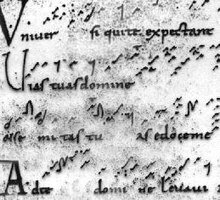 Univer si qui te expectant
Uias tuas domine
ostie mi tas tu as edoceme
Ad te domi ne leuaui